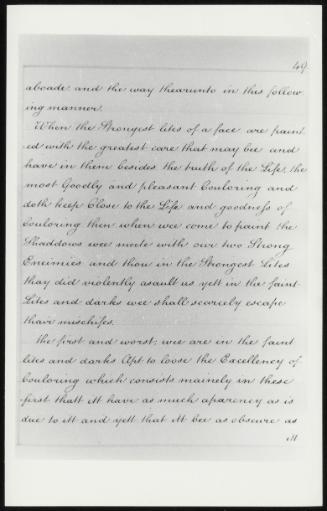 49.
aboade and the way thearunto in this follow
ing manner.
When the Strongest lites of a face are paint
ed with the greatest care that may bee and
have in them besides the truth of the Life, the
most Goodly and pleasant Couloring and
doth keep Close to the Life and goodness of
Couloring then when wee come to paint the
Shaddows wee meete with our two Strong
Eneimies and thow in the Strongest Lites
thay did violently asault us yett in the faint
Lites and darks wee shall scarcely escape
thair mischifes.
The first and worst, wee are in the faint
lites and darks Apt to loose the Excellency of
Couloring which consists mainely in these
first thatt it have as much aparency as is
due to it and yett that it bee as obscure as
it